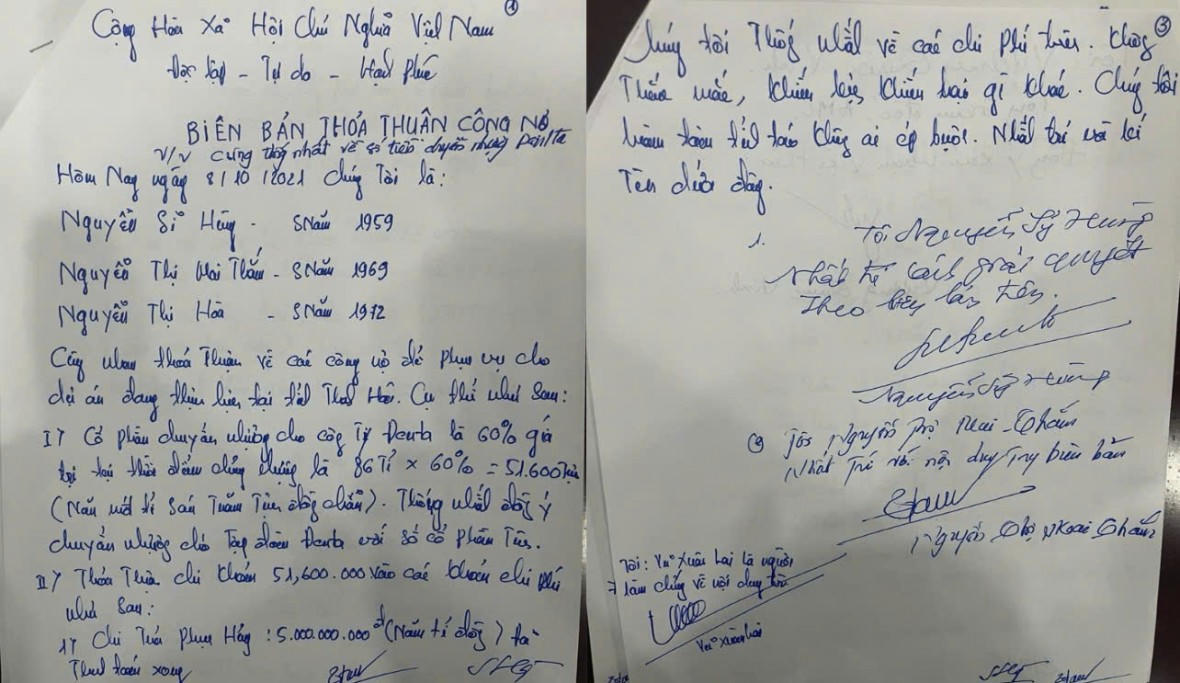 ①
Cộng Hòa Xã Hội Chủ Nghĩa Việt Nam
Độc lập - Tự do - Hạnh phúc
BIÊN BẢN THỎA THUẬN CÔNG NỢ
V/v cùng thống nhất về số tiền chuyển nhượng Denta
Hôm Nay ngày 8/10/2021 chúng Tôi là:
Nguyễn Sĩ Hùng - SNăm 1959
Nguyễn Thị Mai Thắm - SNăm 1969
Nguyễn Thị Hòa - SNăm 1972
Cùng nhau thoả Thuận về các công nợ để phục vụ cho
dự án đang thực hiện tại tỉnh Thanh Hóa. Cụ thể như Sau:
I) Cổ phần chuyển nhượng cho công Ty Denta là 60% giá
trị tại thời điểm chuyển nhượng là 86 Tỉ x 60% = 51.600
(Năm mốt tỉ Sáu Trăm Triệu đồng chẵn). Thống nhất đồng ý
chuyển nhượng cho Tập đoàn Denta với số cổ phần Trên.
II) Thỏa Thuận chi khoản 51,600.000 vào các khoản chi phí
như Sau:
1) Chi Trả Phục Hằng: 5.000.000.000đ (Năm tỉ đồng) đã
Thanh toán xong
③
chúng tôi Thống nhất về các chi Phí trên. Không
Thắc mắc, khiếu kiện khiếu nại gì khác. Chúng tôi
hoàn toàn tỉnh táo không ai ép buộc. Nhất trí và kí
Tên dưới đây.
1. Tôi Nguyễn Sỹ Hùng
Nhất trí cách giải quyết
Theo biên bản trên.
Nguyễn Sỹ Hùng
Tôi Nguyễn Thị Mai Thắm
Nhất Trí với nội dung trong biên bản
Nguyễn Thị Mai Thắm
Tôi: Vũ Xuân Lai là người
làm chứng về nội dung trên
Vũ Xuân Lai